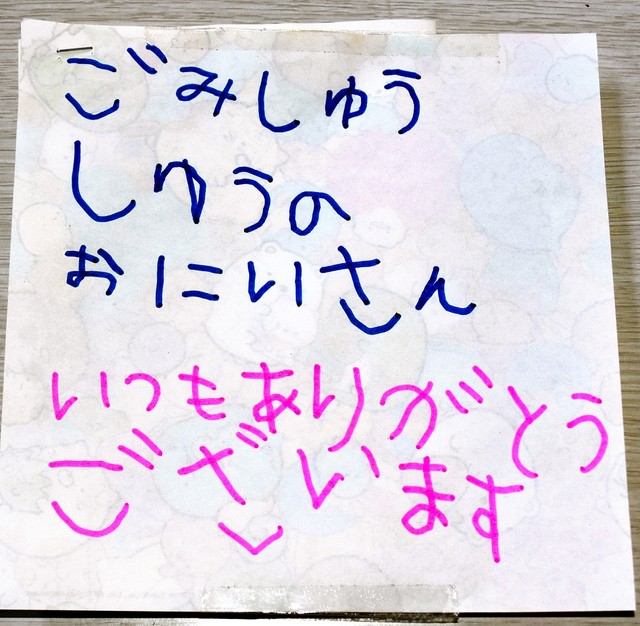 ごみしゅう
しゅうの
おにいさん
いつもありがとう
ございます